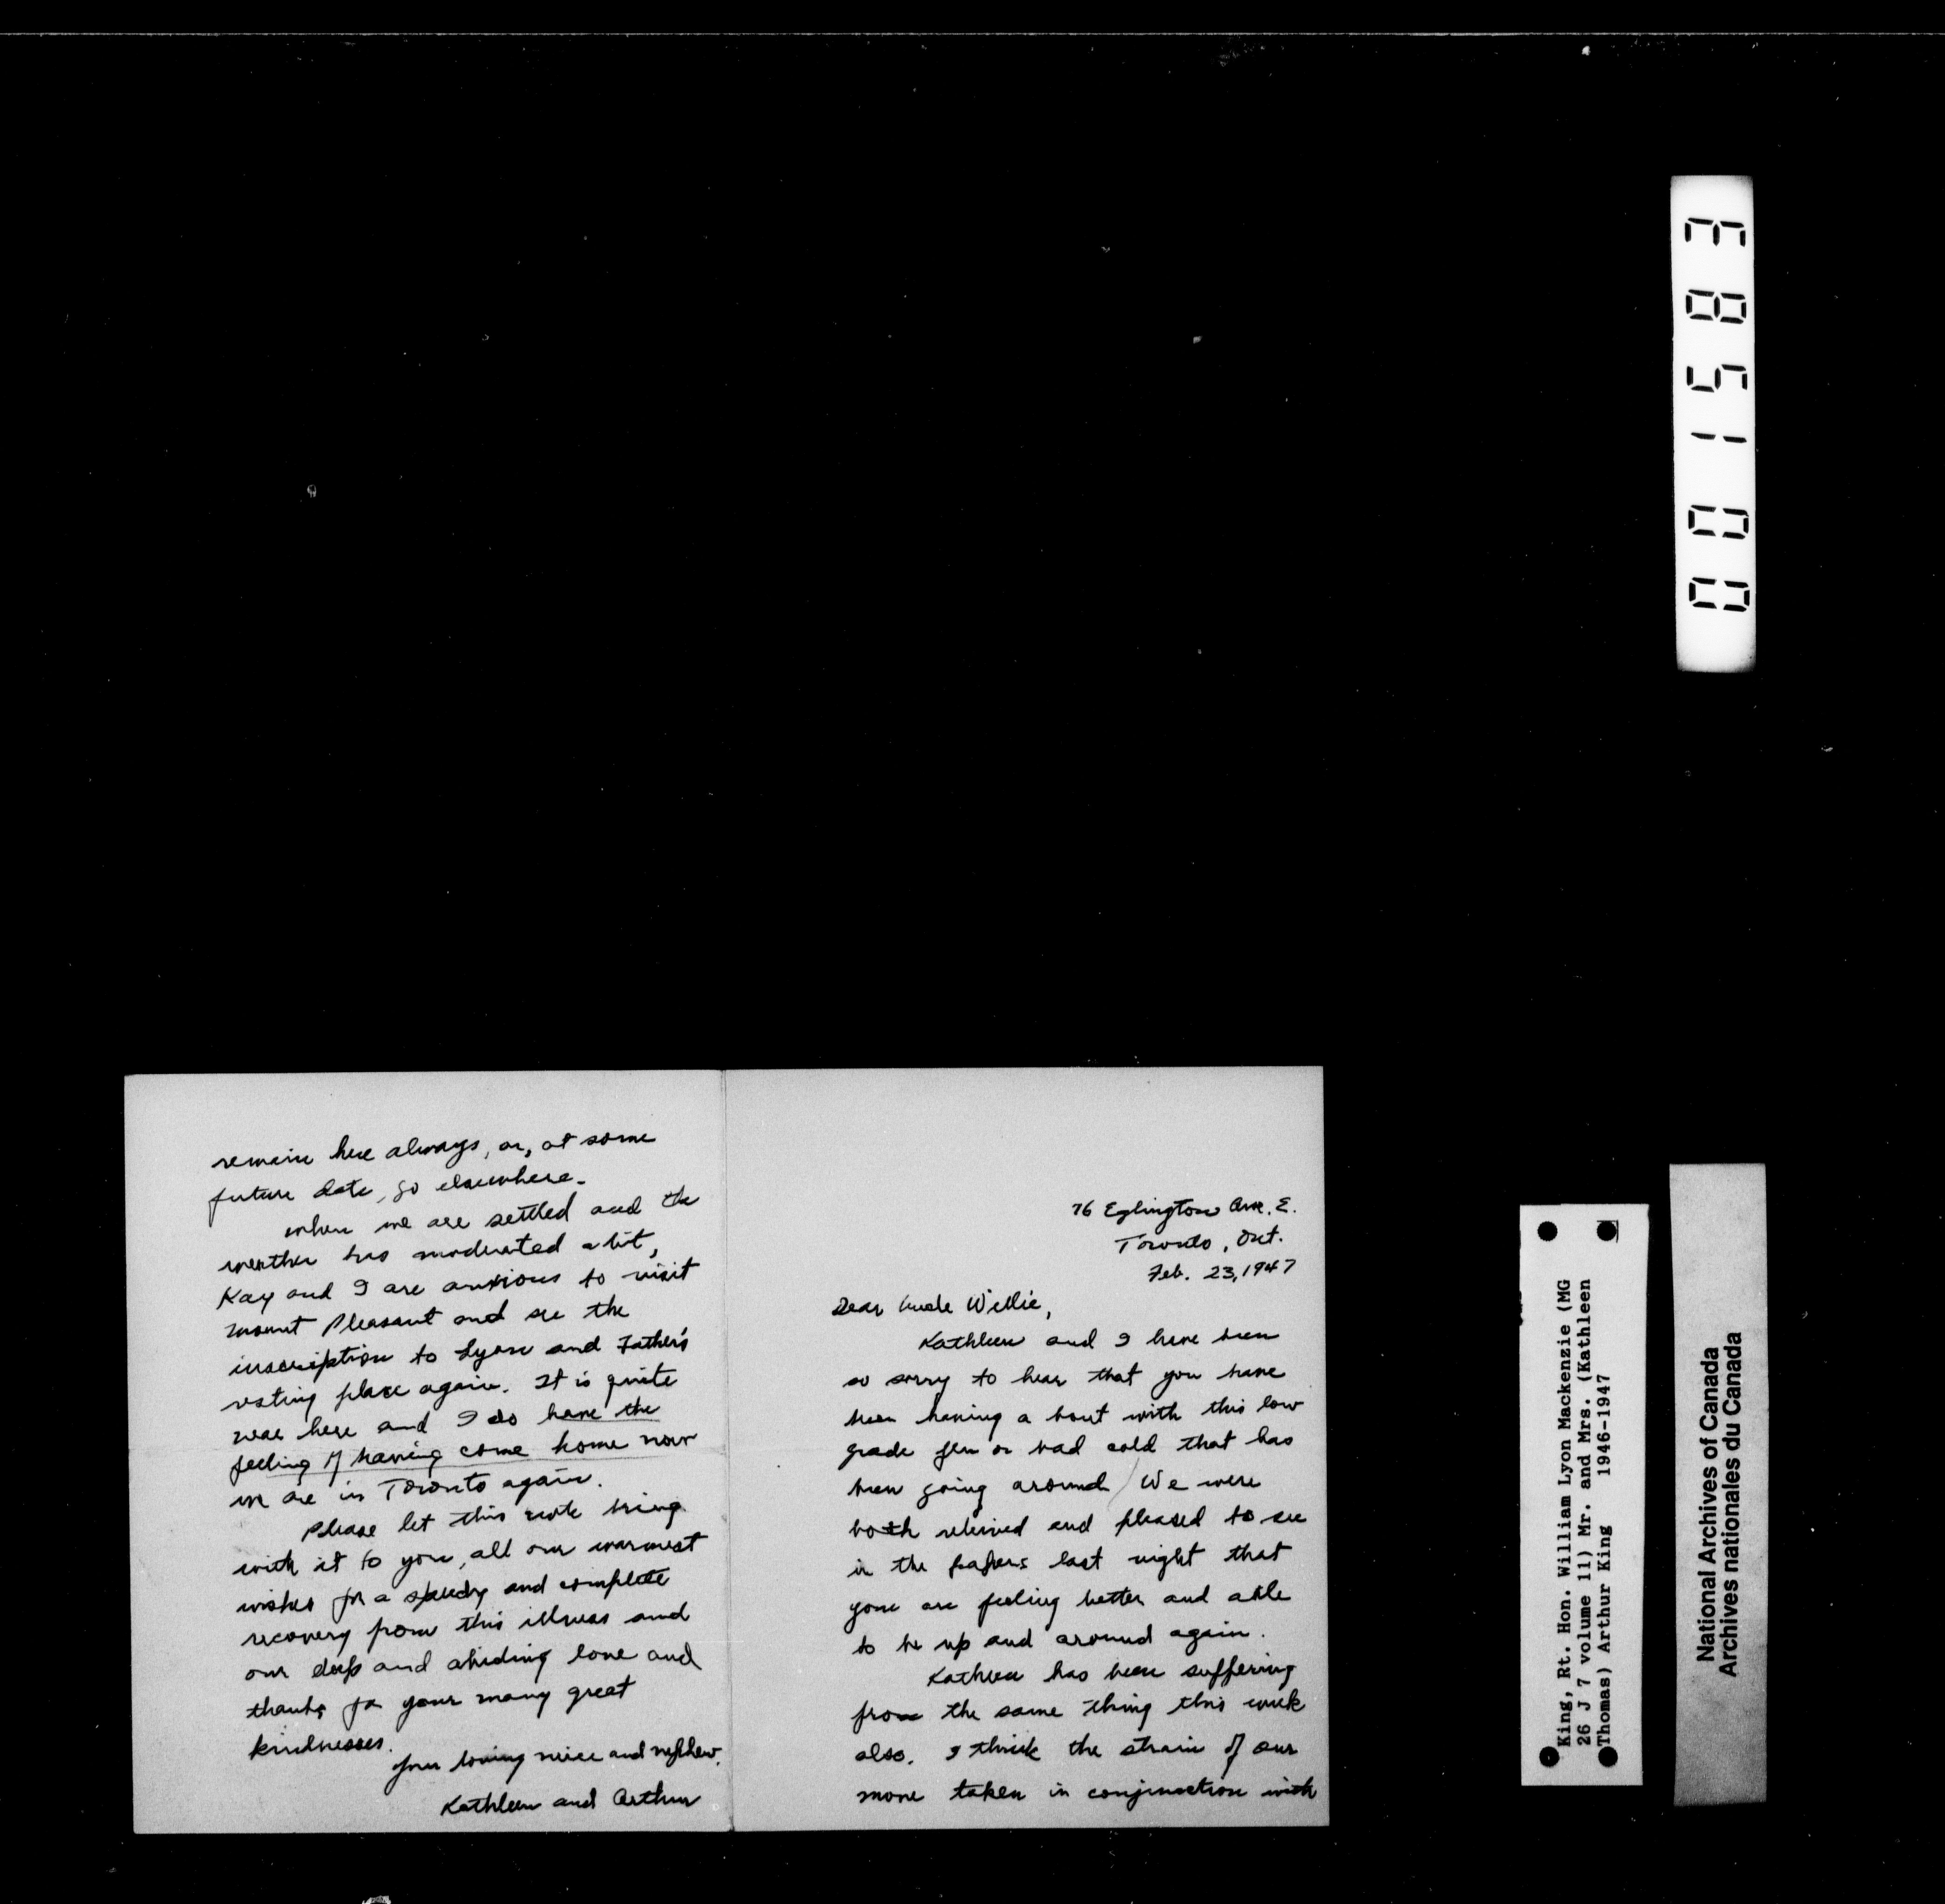 remain here always, or, at some
future date, go elsewhere.
when we are settled and the
weather has moderated a bit,
Kay and I are anxious to visit
Mount Pleasant and see the
inscription to Lyon and Father's
resting place again. It is quite
near here and I do have the
feeling of having come home now
we are in Toronto again.
Please let this note bring
with it to you, all our warmest
wishes for a speedy and complete
recovery from this illness and
our deep and abiding love and
thanks for your many great
kindnesses.
Your loving niece and nephew,
Kathleen and Arthur
76 Eglington Ave. E.
Toronto, Ont.
Feb. 23, 1947
Dear Uncle Willie,
Kathleen and I have been
so sorry to hear that you have
been having a bout with this low
grade flu or bad cold that has
been going around / We were
both relieved and pleased to see
in the papers last night that
you are feeling better and able
to be up and around again.
Kathleen has been suffering
from the same thing this week
also. I think the strain of our
move taken in conjunction with
001583
King, Rt. Hon. William Lyon Mackenzie (MG
26 J 7 volume 11) Mr. and Mrs. (Kathleen
Thomas) Arthur King 1946-1947
National Archives of Canada
Archives nationales du Canada